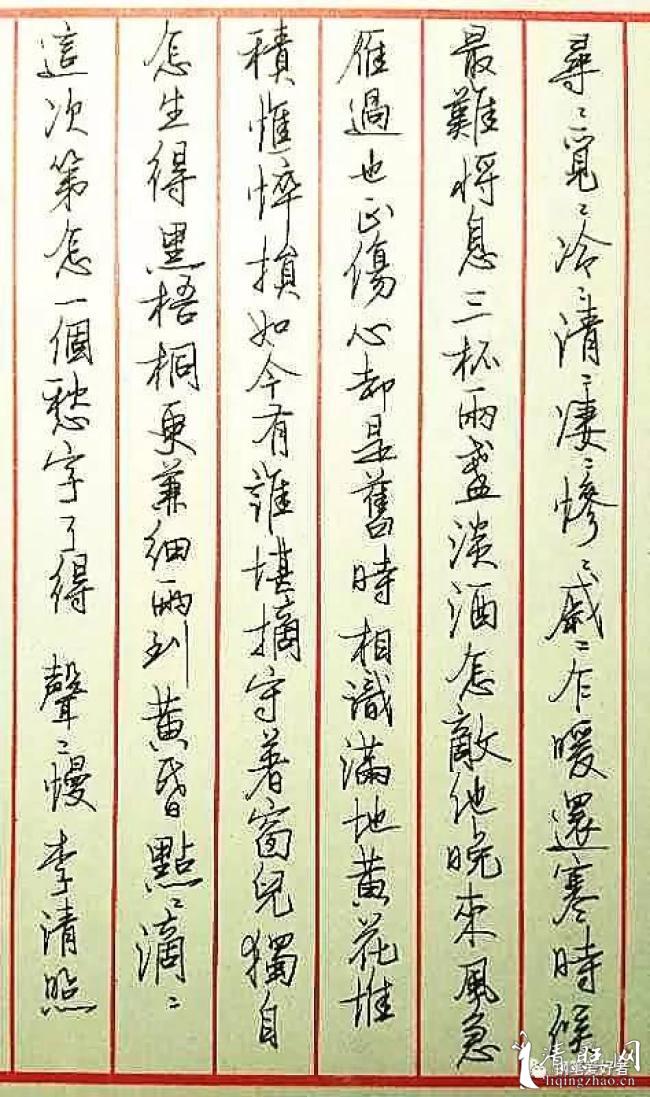 尋〻覓〻冷〻清〻凄〻慘〻戚〻乍暖還寒時候
最難將息三杯兩盞淡酒怎敵他晚來風急
雁過也正傷心却是舊時相識滿地黄花堆
積憔悴損如今有誰堪摘守著窗兒獨自
怎生得黑梧桐更兼細雨到黄昏點〻滴〻
這次第怎一個愁字了得 聲〻慢 李清照
清旺网
liqingzhao.com